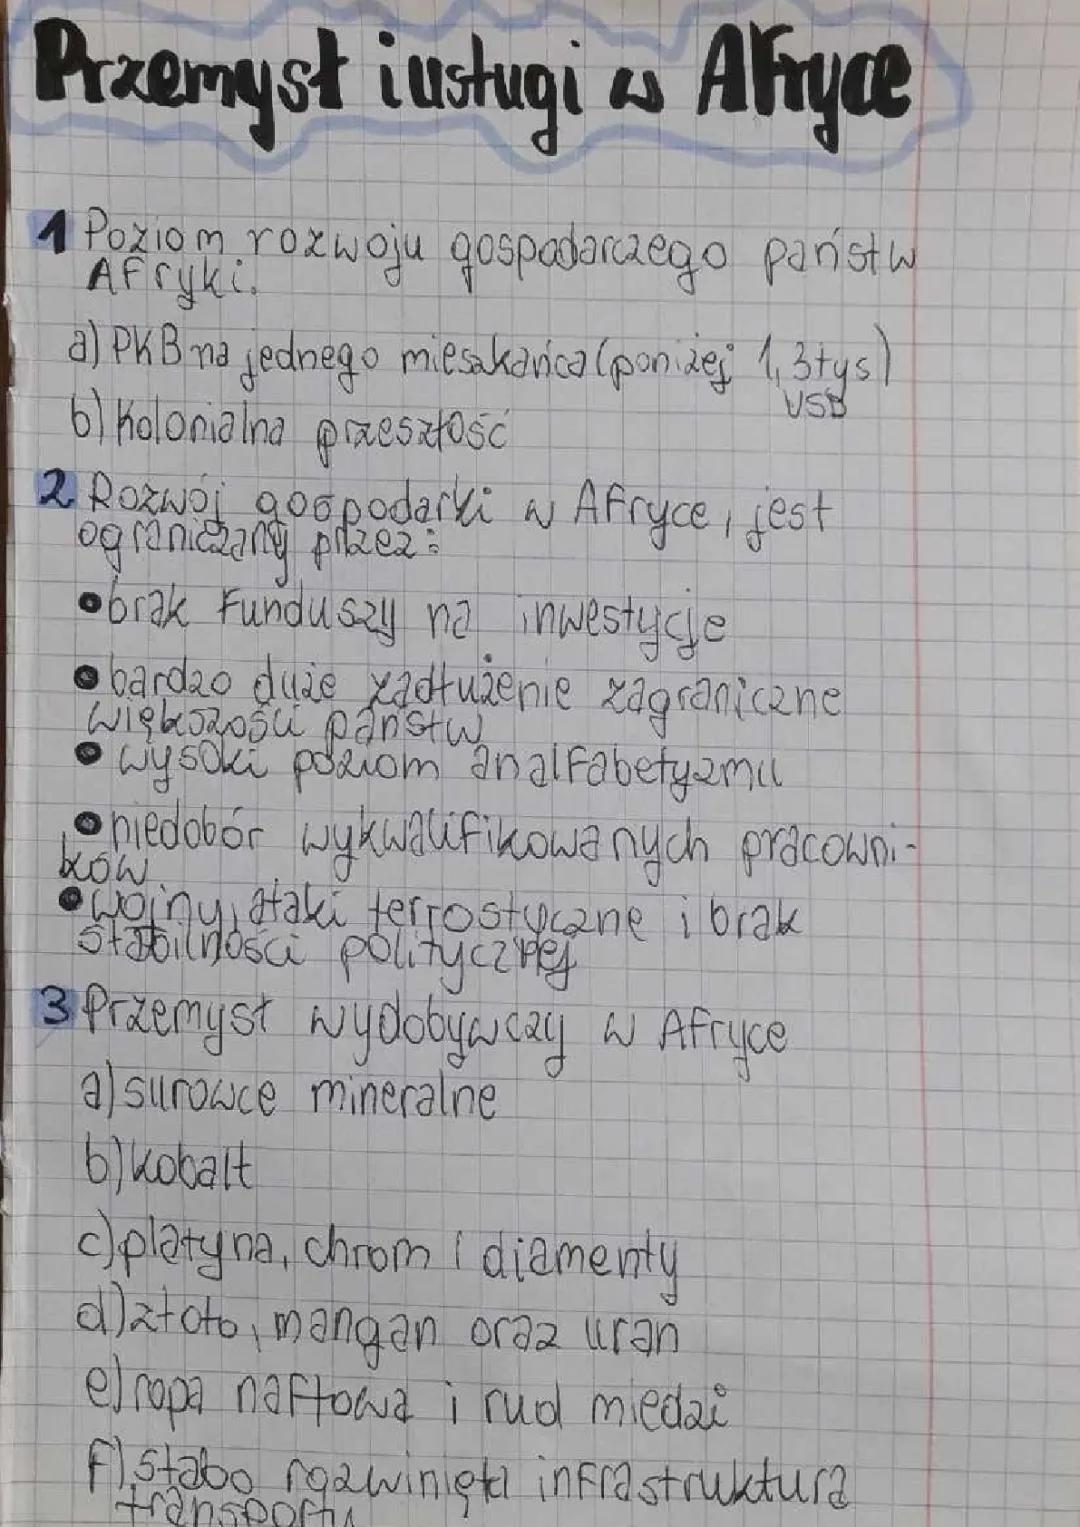 Przemysł i usługi w Afryce
1 Poziom rozwoju gospodarczego państw
Afryki.
a) PKB na jednego mieszkańca (poniżej 1,3 tys)
USD
b) Kolonialna przeszłość
2 Rozwój gospodarki w Afryce, jest
ograniczany przez:
• brak funduszy na inwestycje
• bardzo duże zadłużenie zagraniczne
większości państw
• wysoki poziom analfabetyzmu
• niedobór wykwalifikowanych pracowni-
ków
• wojny, ataki terrostyczne i brak
stabilności politycznej
3 Przemysł wydobywczy w Afryce
a) surowce mineralne
b) kobalt
c) platyna, chrom i diamenty
d) złoto, mangan oraz uran
e) ropa naftowa i rud miedzi
f) Słabo rozwinięta infrastruktura
transportu